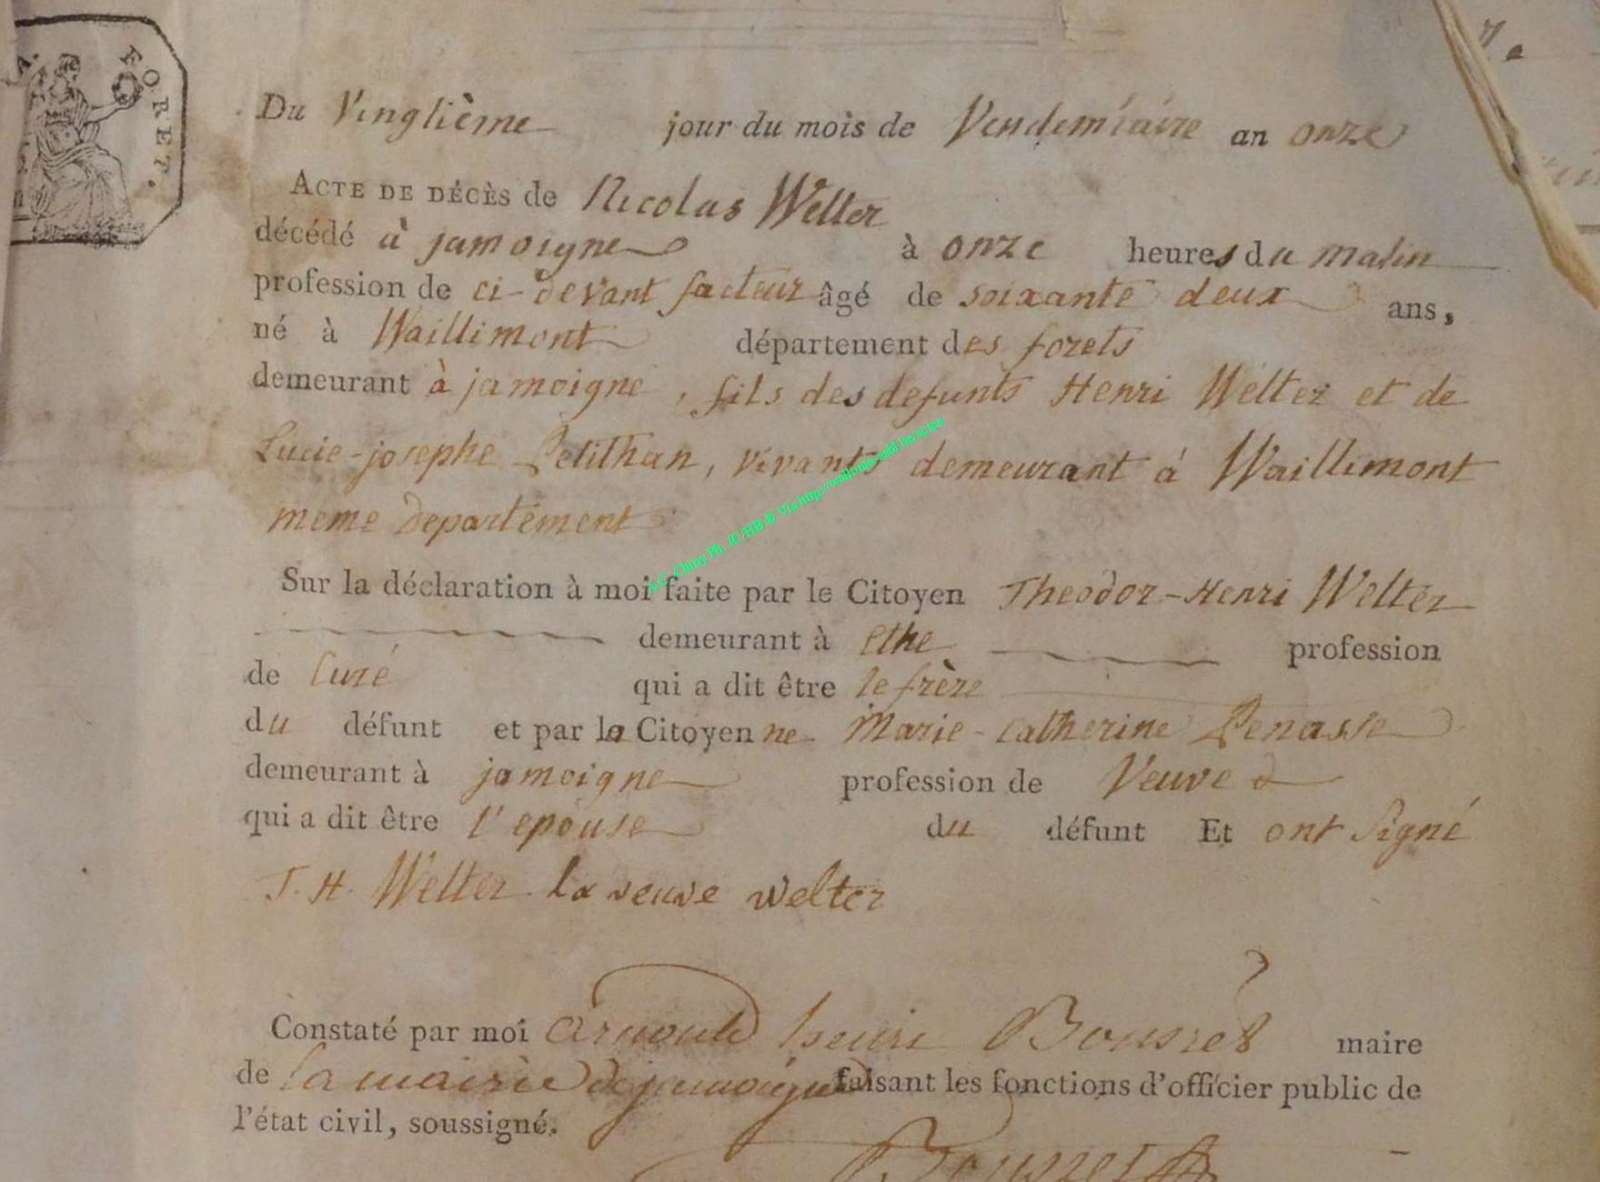 FORET.
7.
Du Vingtième jour du mois de Vendemiaire an onze
ACTE DE DÉCÈS de Nicolas Welter
décédé à jamoigne à onze heures du matin
profession de ci-devant facteur âgé de soixante deux ans,
né à Waillimont département des forets
demeurant à jamoigne, fils des defunts Henri Welter et de
Lucie-josephe Petithan, vivants demeurant à Waillimont
meme departement
Sur la déclaration à moi faite par le Citoyen Theodor-Henri Welter
demeurant à Ethe profession
de Curé qui a dit être le frère
du défunt et par la Citoyenne Marie-Catherine Penasse
demeurant à jamoigne profession de Veuve
qui a dit être l'epouse du défunt Et ont Signé
T. H. Welter la veuve welter
Constaté par moi Arnould henri maire
de la mairie de jamoigne faisant les fonctions d'officier public de
l'état civil, soussigné.